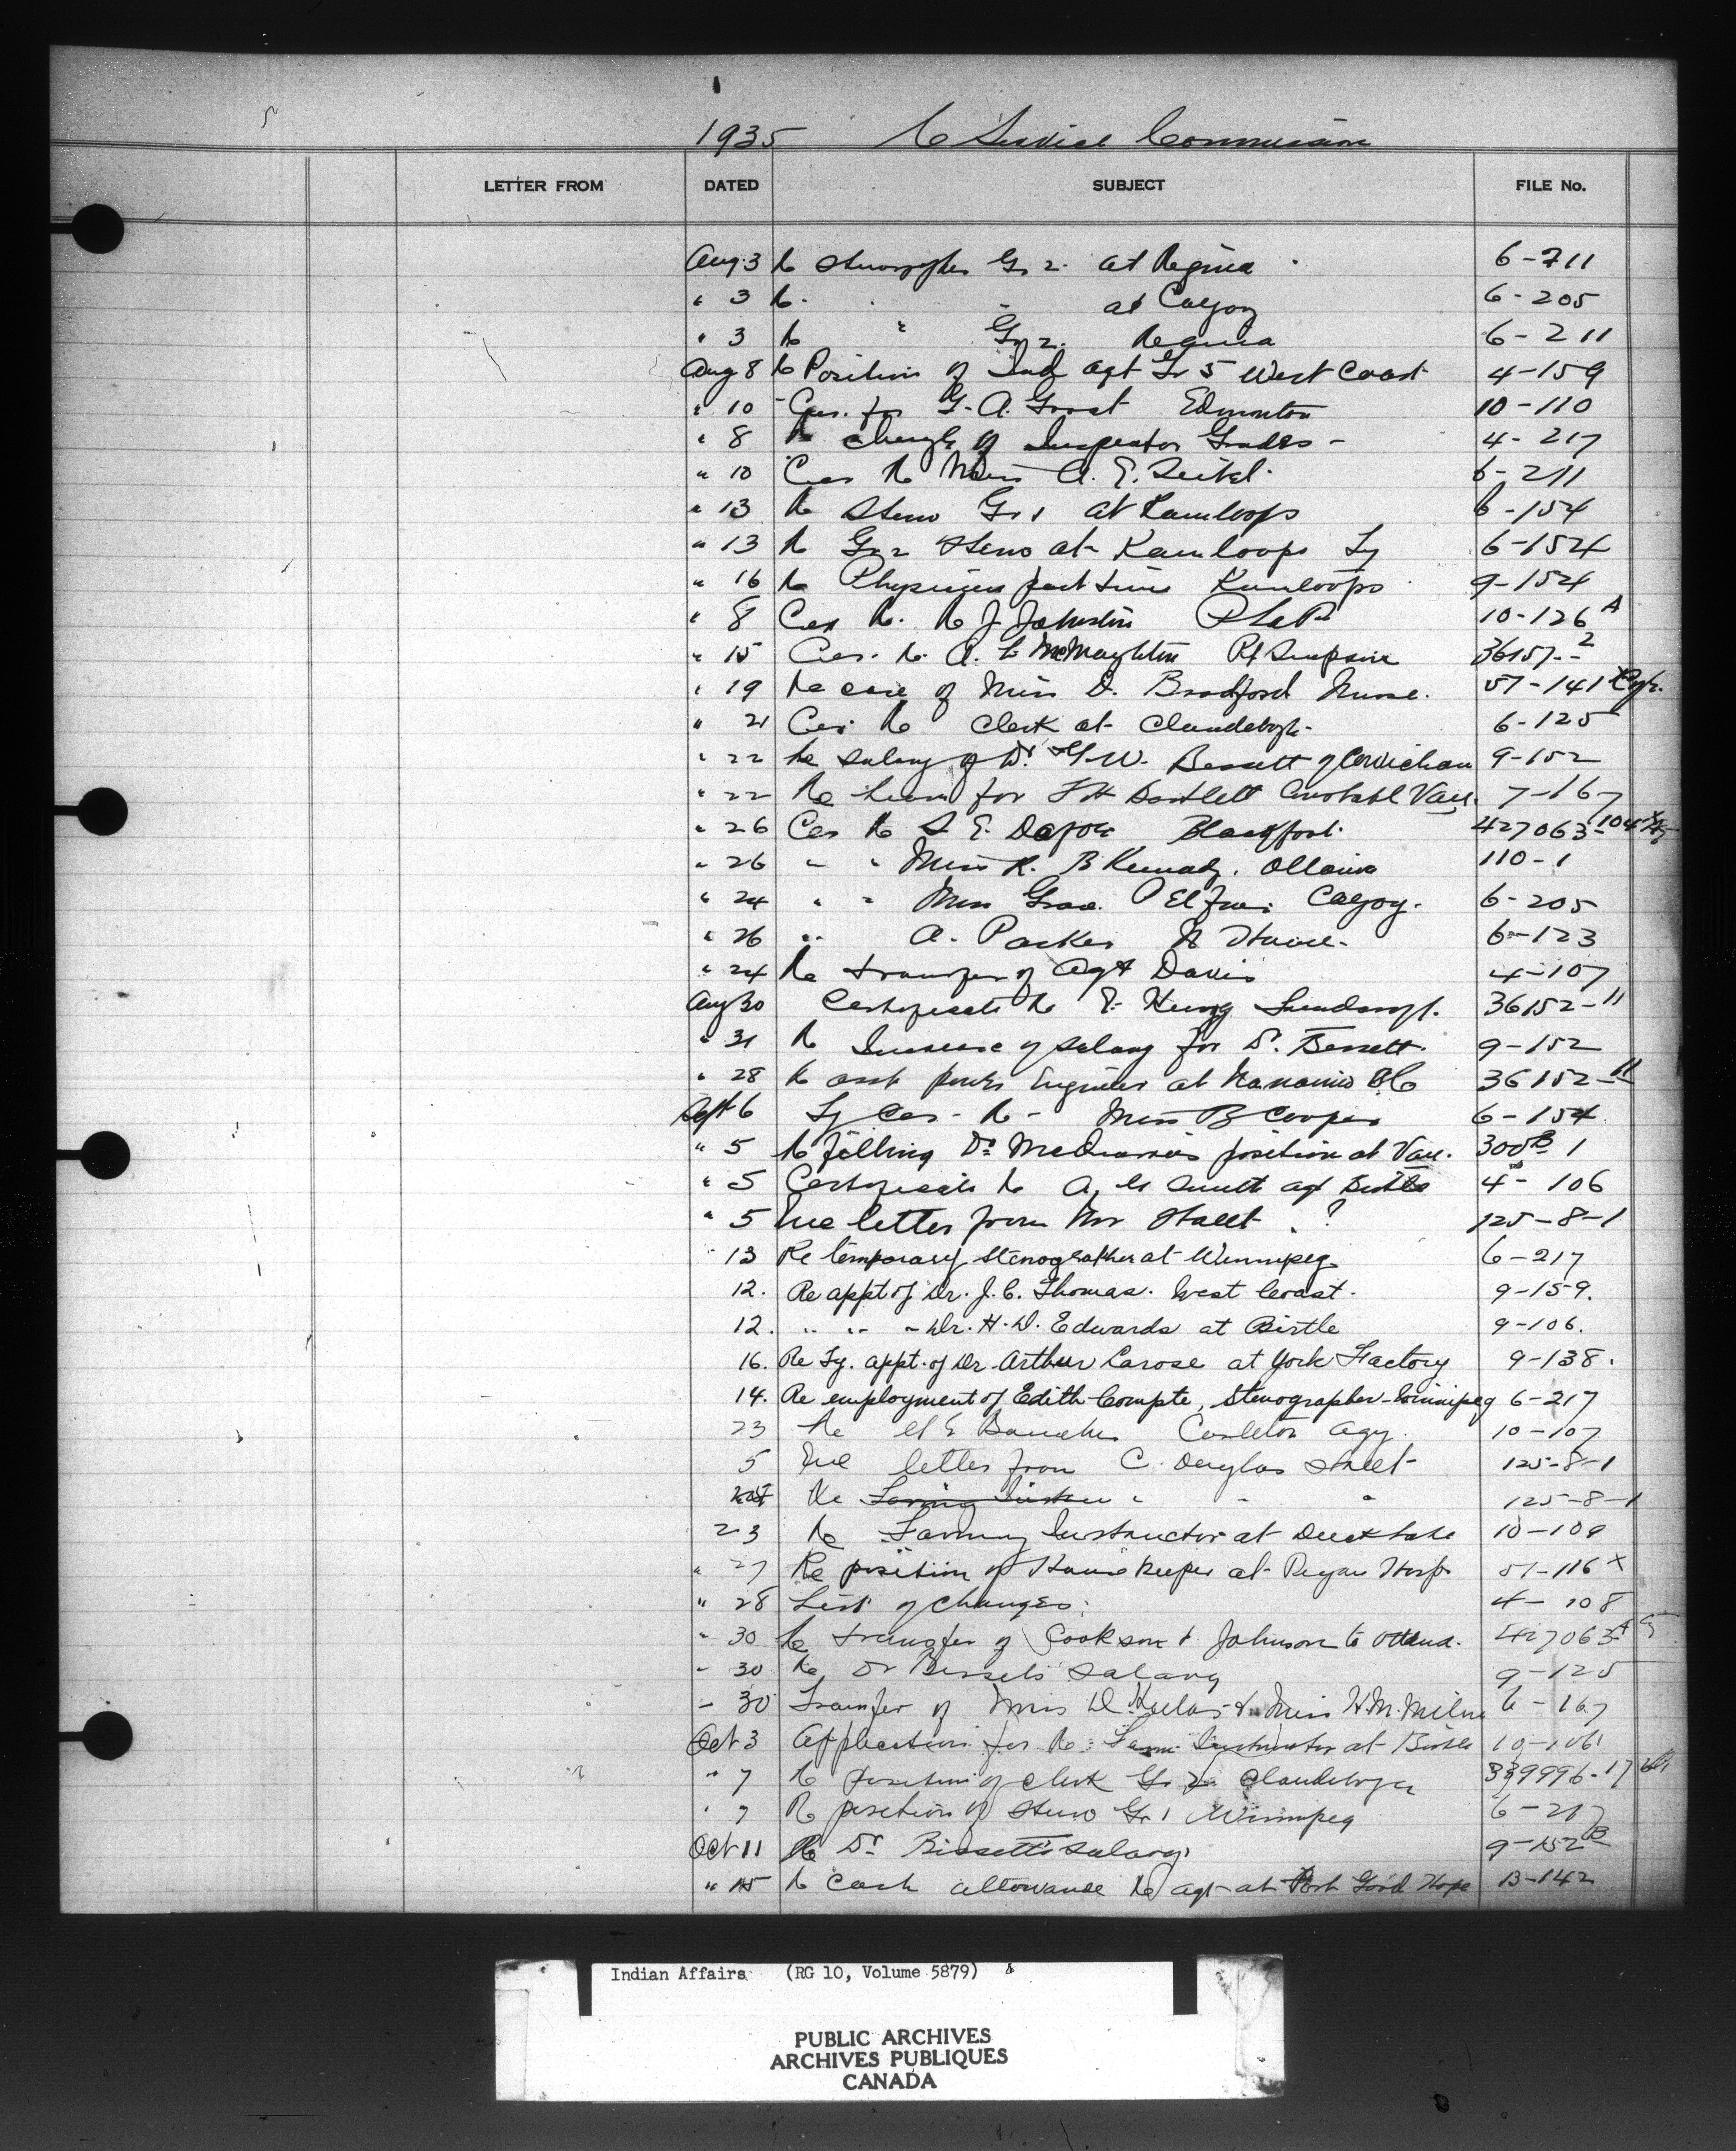 1935 C Service Commission
LETTER FROM DATED SUBJECT FILE No.
Aug 3 Re Stenographer Gr 2. at Regina 6-211
" 3 Re " " at Calgary 6-205
" 3 Re " Gr 2. Regina 6-211
Aug 8 Re Position of Ind Agt Gr 5 West Coast 4-159
" 10 Cer. for G. A. Edmonton 10-110
" 8 Re change of Inspector Grades - 4-217
" 10 Cer Re Miss A. E. 6-211
" 13 Re Steno Gr 1 at Kamloops 6-154
" 13 Re Gr 2 Steno at Kamloops Ty 6-154
" 16 Re Physician part time Kamloops 9-154
" 8 Cer Re. R J Johnston 10-126 A
" 15 Cer. Re. A. McNaughton Pt Simpson 36157-2
" 19 Re case of Miss D. Bradford Nurse. 51-141 x
" 21 Cer Re Clerk at Clandeboye 6-125
" 22 Re salary of Dr. Bessett of Cowichan 9-152
" 22 Re for Bartlett Constable Van. 7-167
" 26 Cer Re S. E. Blackfoot 427063-104
" 26 " " Miss K. B Kennedy. Ottawa 110-1
" 24 " " Miss Grace P Calgary. 6-205
" 26 " A. Parker 6-123
" 24 Re transfer of Agt Davis 4-107
Aug 30 Certificate Re 36152-11
" 31 Re Increase of salary for Dr. Bessett. 9-152
" 28 Re asst power Engineer at Nanaimo BC 36152-11
Sept 6 Ty Cer - Re - Miss B Cooper 6-154
" 5 Re filling Dr position at Van. 300 B 1
" 5 Certificate Re A. G Smith agt Birtle 4-106
" 5 Inc letter from Mr Street . ? 125-8-1
" 13 Re temporary stenographer at Winnipeg 6-217
12. Re appt of Dr. J. C. Thomas. West Coast. 9-159.
12. " " " Dr. H. D. Edwards at Birtle 9-106.
16. Re Ty. appt. of Dr. Arthur Larose at York Factory 9-138.
14. Re employment of Edith Compte, Stenographer - Winnipeg 6-217
23 Re Carleton Agy. 10-107
5 Inc letter from C. Douglas Street 125-8-1
Re " " " 125-8-1
23 Re Farming Instructor at Duck Lake 10-109
" 27 Re position of Housekeeper at Peigan Hosp. 51-116 x
" 28 List of Changes. 4-108
" 30 Re transfer of Cookson & Johnson to Ottawa. 427063 A
" 30 Re Dr Bessets salary 9-125
" 30 Transfer of Miss D. & Miss H. M. Milne 6-167
Oct 3 Application for Re Farm Instructor at Birtle 10-106
" 7 Re position of clerk Gr 2 Clandeboye 339996-17
" 7 Re position of Steno Gr 1 Winnipeg 6-217
Oct 11 Re Dr Bissett's salary 9-152 B
" 15 Re Cash allowance Re agt at Fort Good Hope 13-142
Indian Affairs (RG 10, Volume 5879)
PUBLIC ARCHIVES
ARCHIVES PUBLIQUES
CANADA